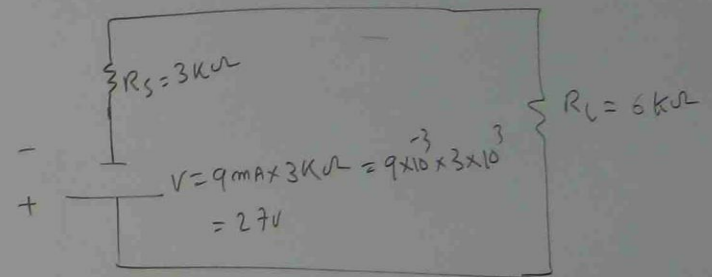 Rs = 3KΩ
RL = 6KΩ
-
+
V = 9mA × 3KΩ = 9×10⁻³ × 3×10³
= 27V